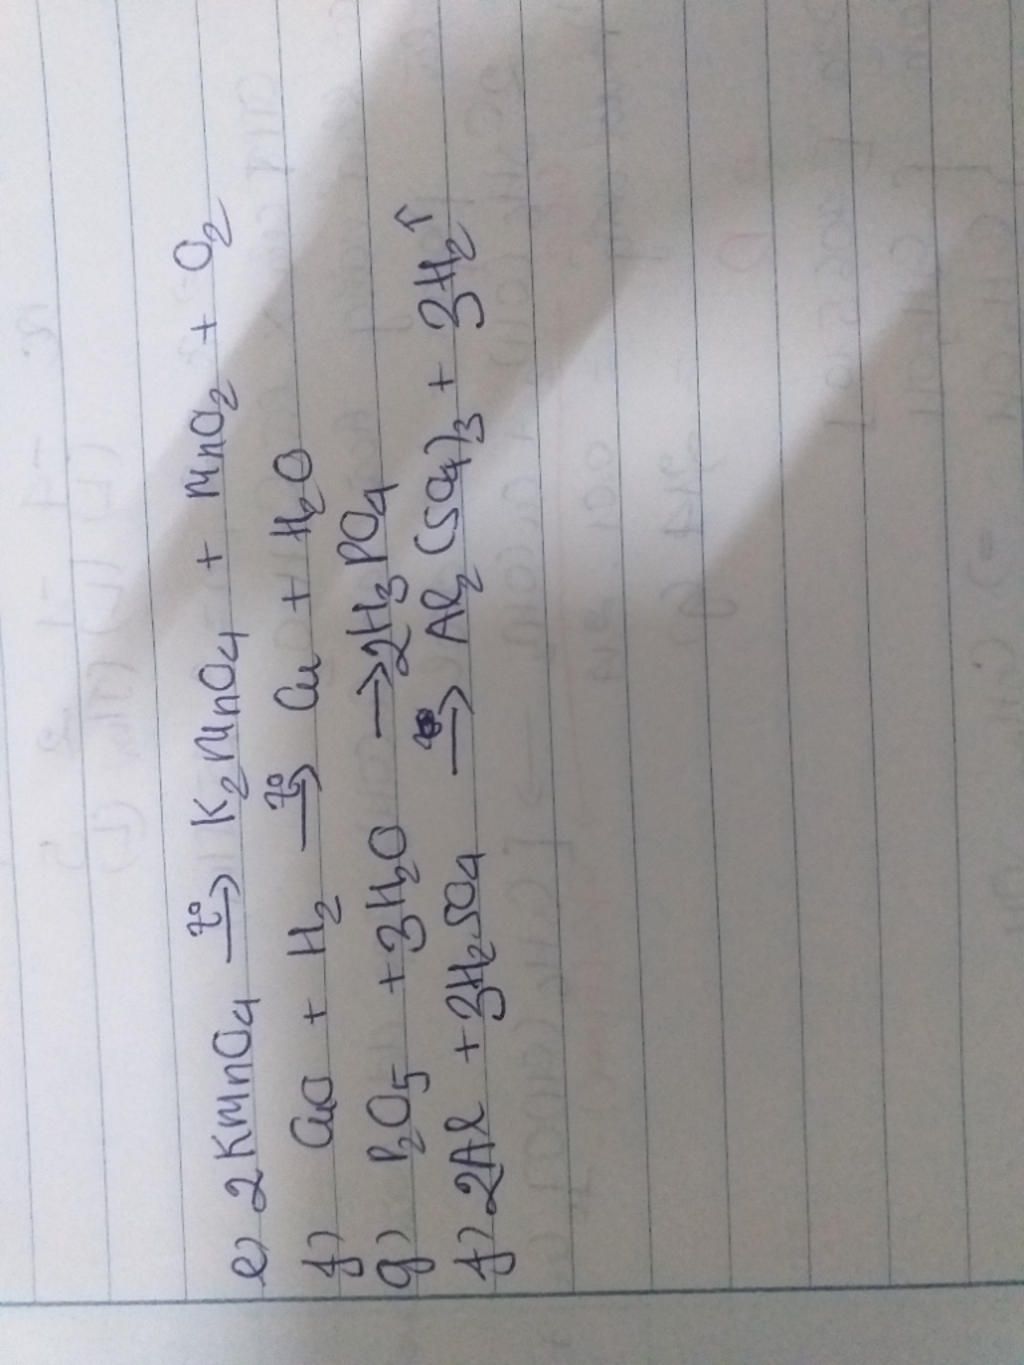 e) 2KMnO4 t°→ K2MnO4 + MnO2 + O2
f) CuO + H2 t°→ Cu + H2O
g) P2O5 + 3H2O → 2H3PO4
f) 2Al + 3H2SO4 → Al2(SO4)3 + 3H2↑